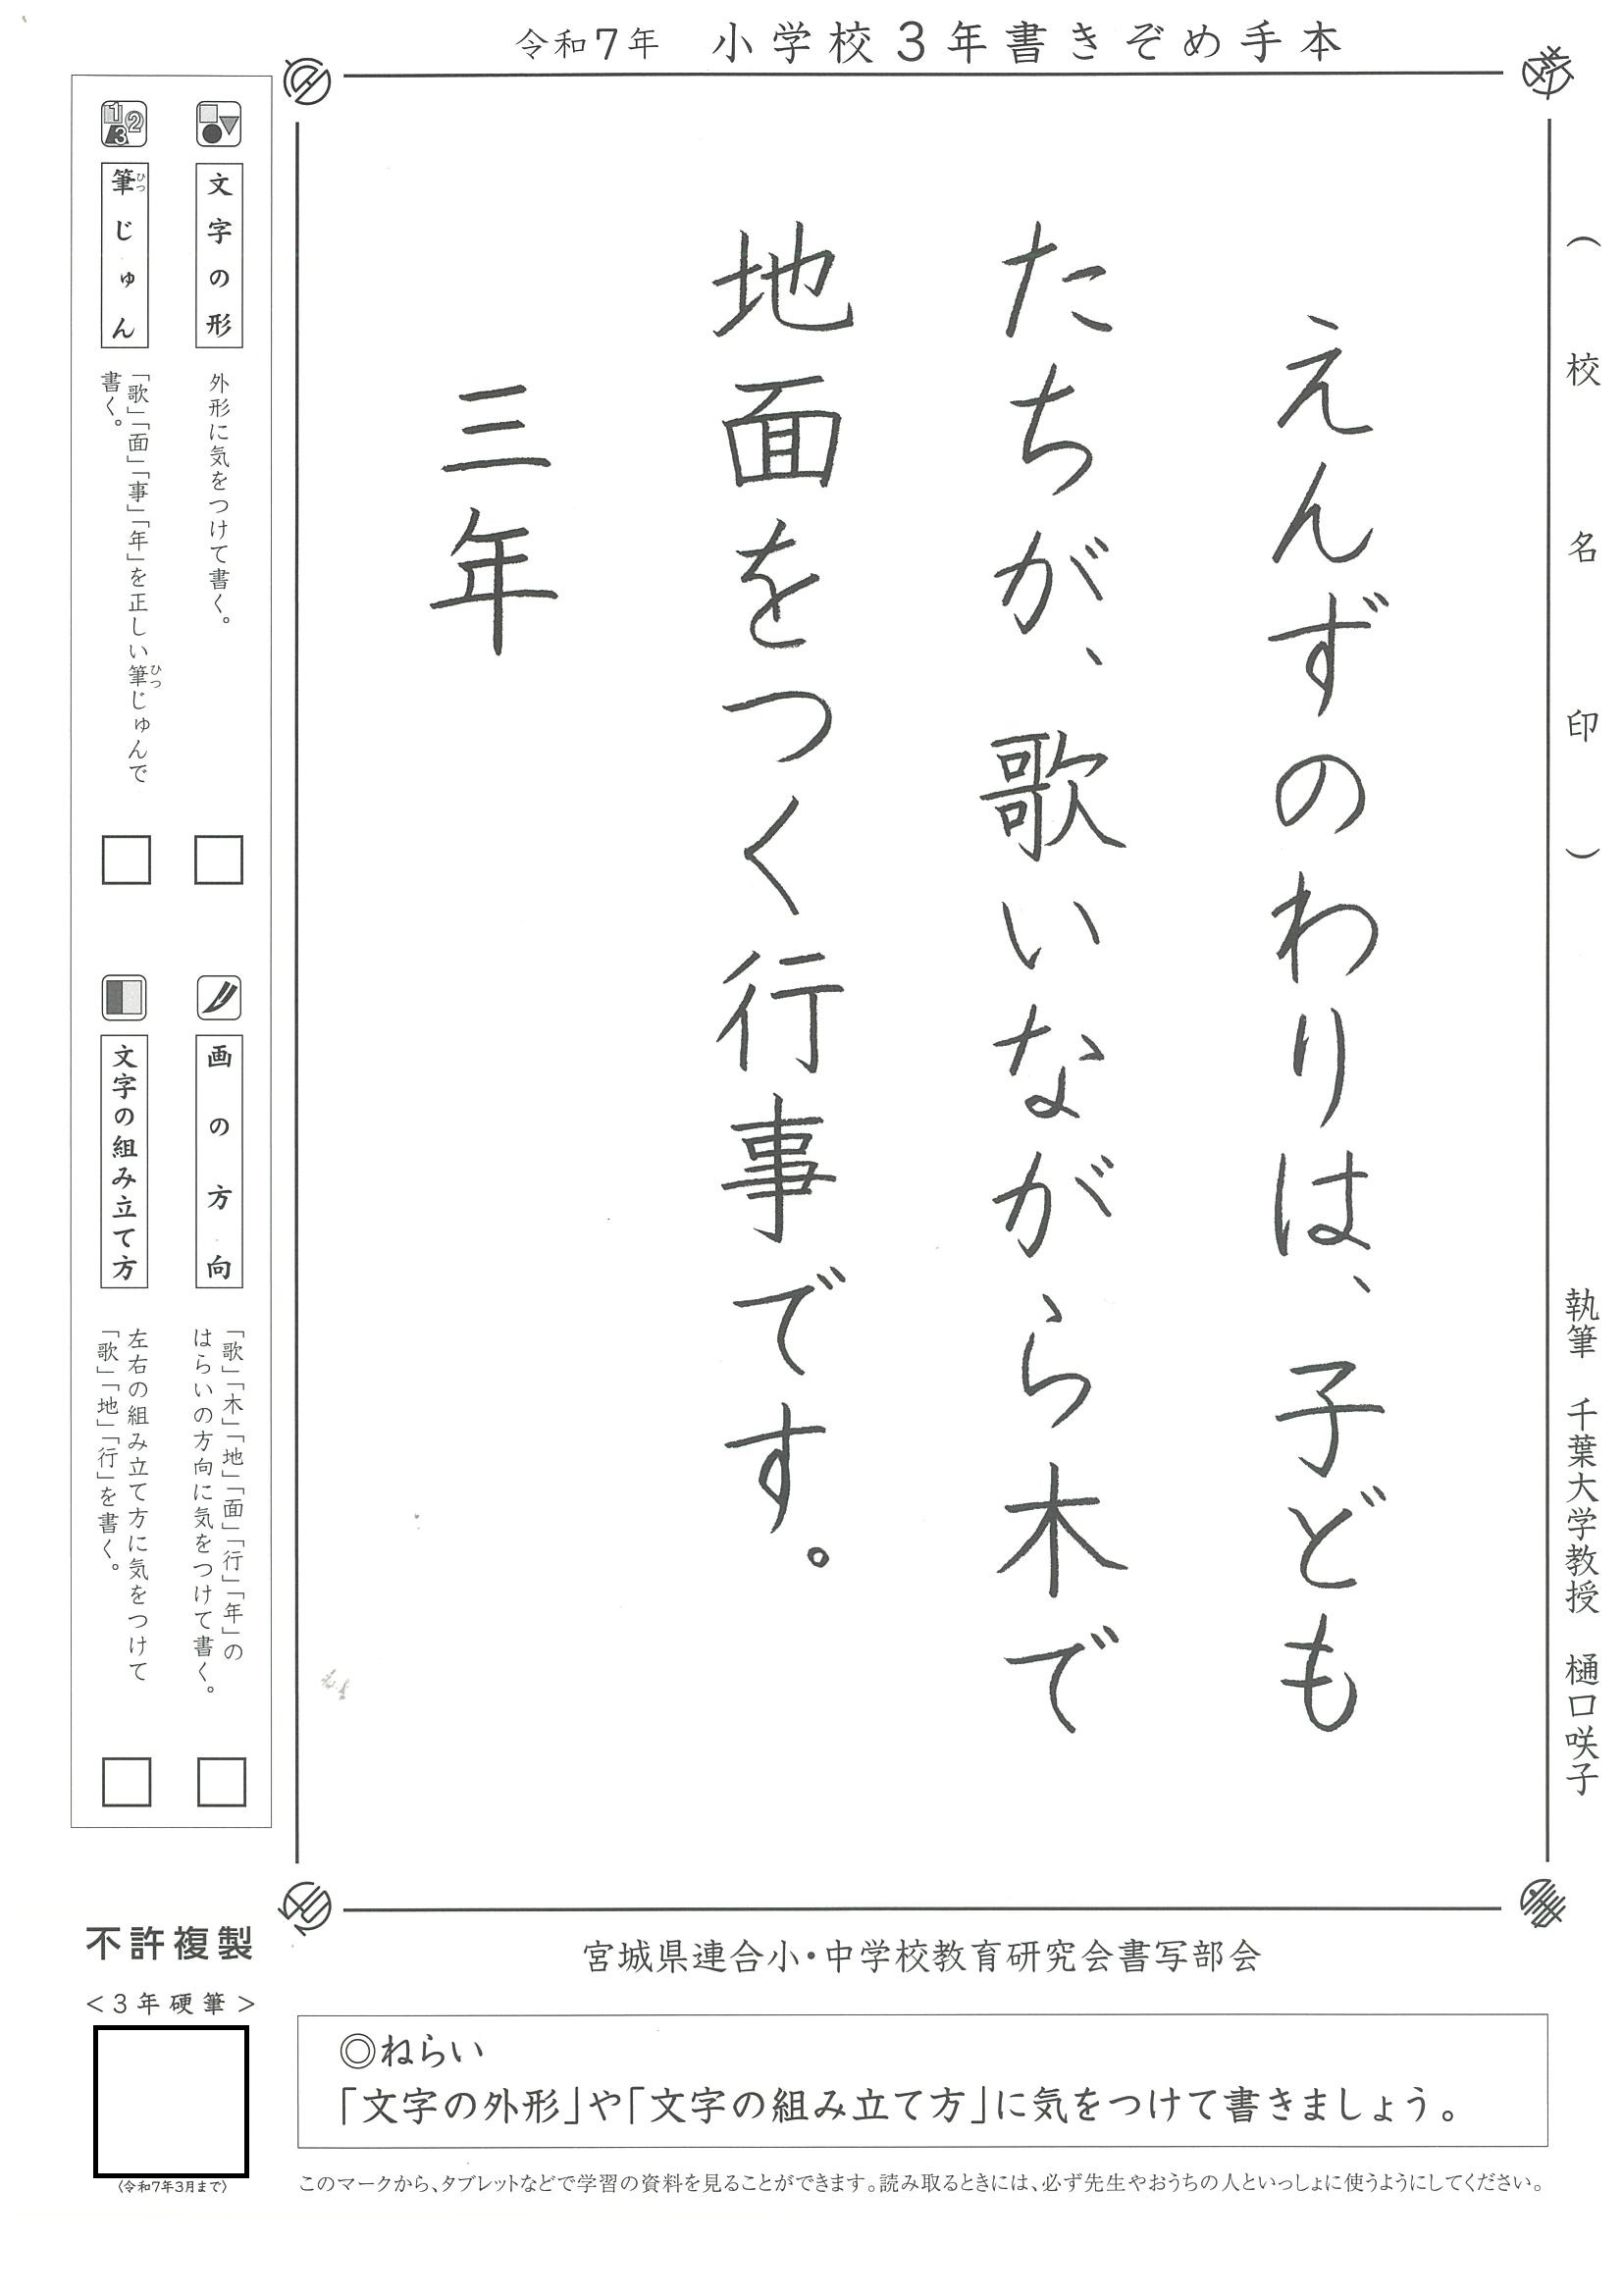 令和7年　小学校3年書きぞめ手本
（校名印）
執筆　千葉大学教授　樋口咲子
えんずのわりは、子ども
たちが、歌いながら木で
地面をつく行事です。
三年
文字の形
外形に気をつけて書く。
画の方向
「歌」「木」「地」「面」「行」「年」の
はらいの方向に気をつけて書く。
筆じゅん
ひつ
「歌」「面」「事」「年」を正しい筆じゅんで
ひつ
書く。
文字の組み立て方
左右の組み立て方に気をつけて
「歌」「地」「行」を書く。
宮城県連合小・中学校教育研究会書写部会
不許複製
<3年硬筆>
〈令和7年3月まで〉
◎ねらい
「文字の外形」や「文字の組み立て方」に気をつけて書きましょう。
このマークから、タブレットなどで学習の資料を見ることができます。読み取るときには、必ず先生やおうちの人といっしょに使うようにしてください。